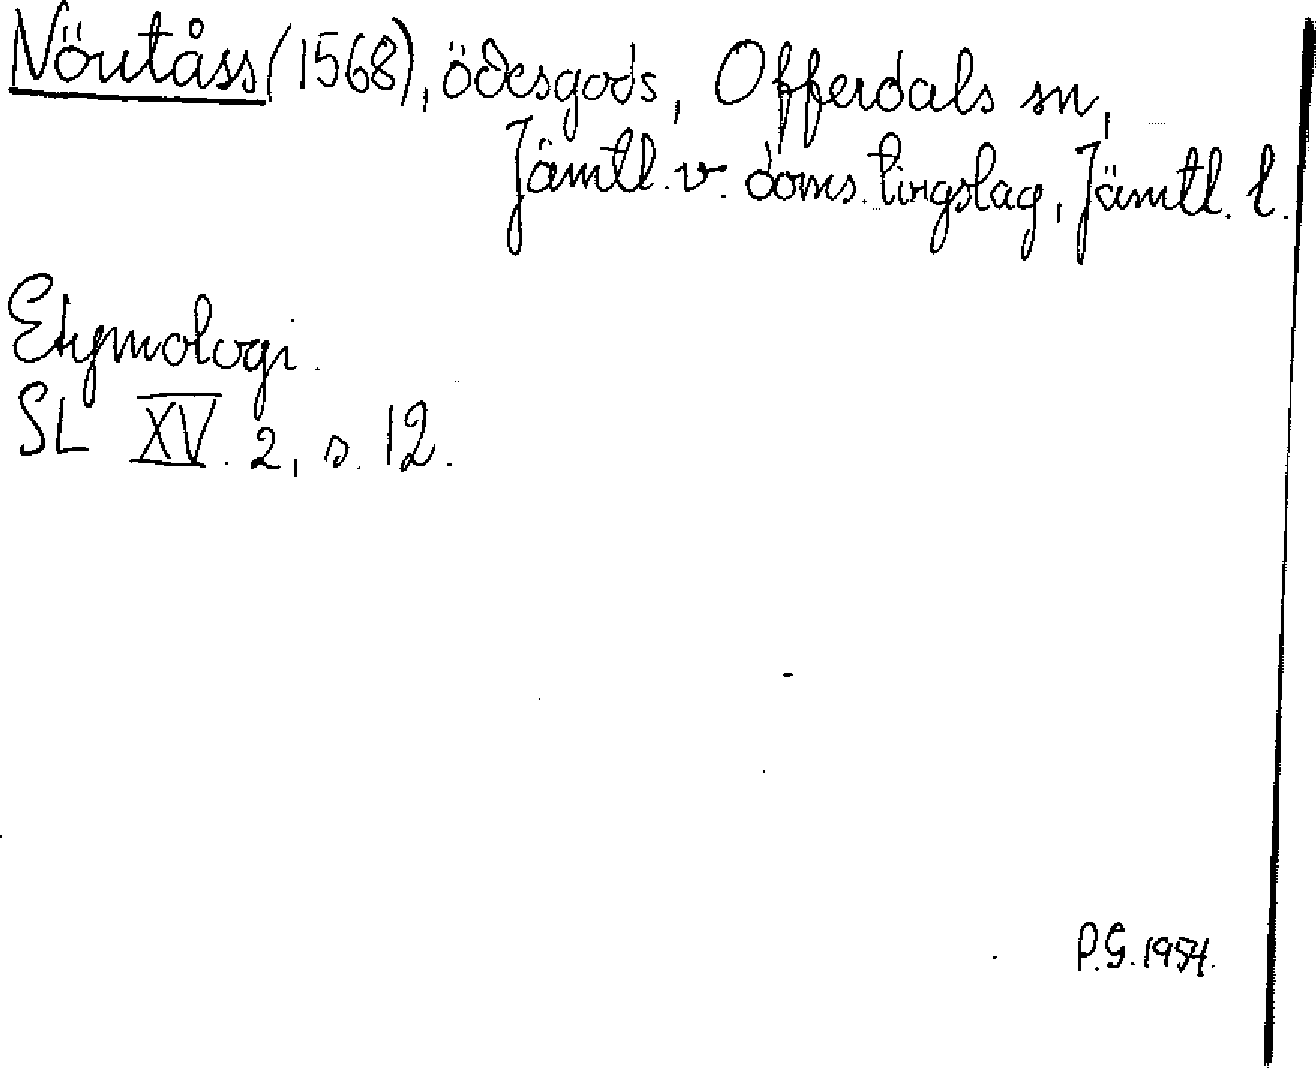 Nörtåss (1568), ödesgods, Offerdals sn,
Jämtl. v. doms. tingslag, Jämtl. l.
Etymologi.
SL XV. 2, s. 12.
P.G. 1954.